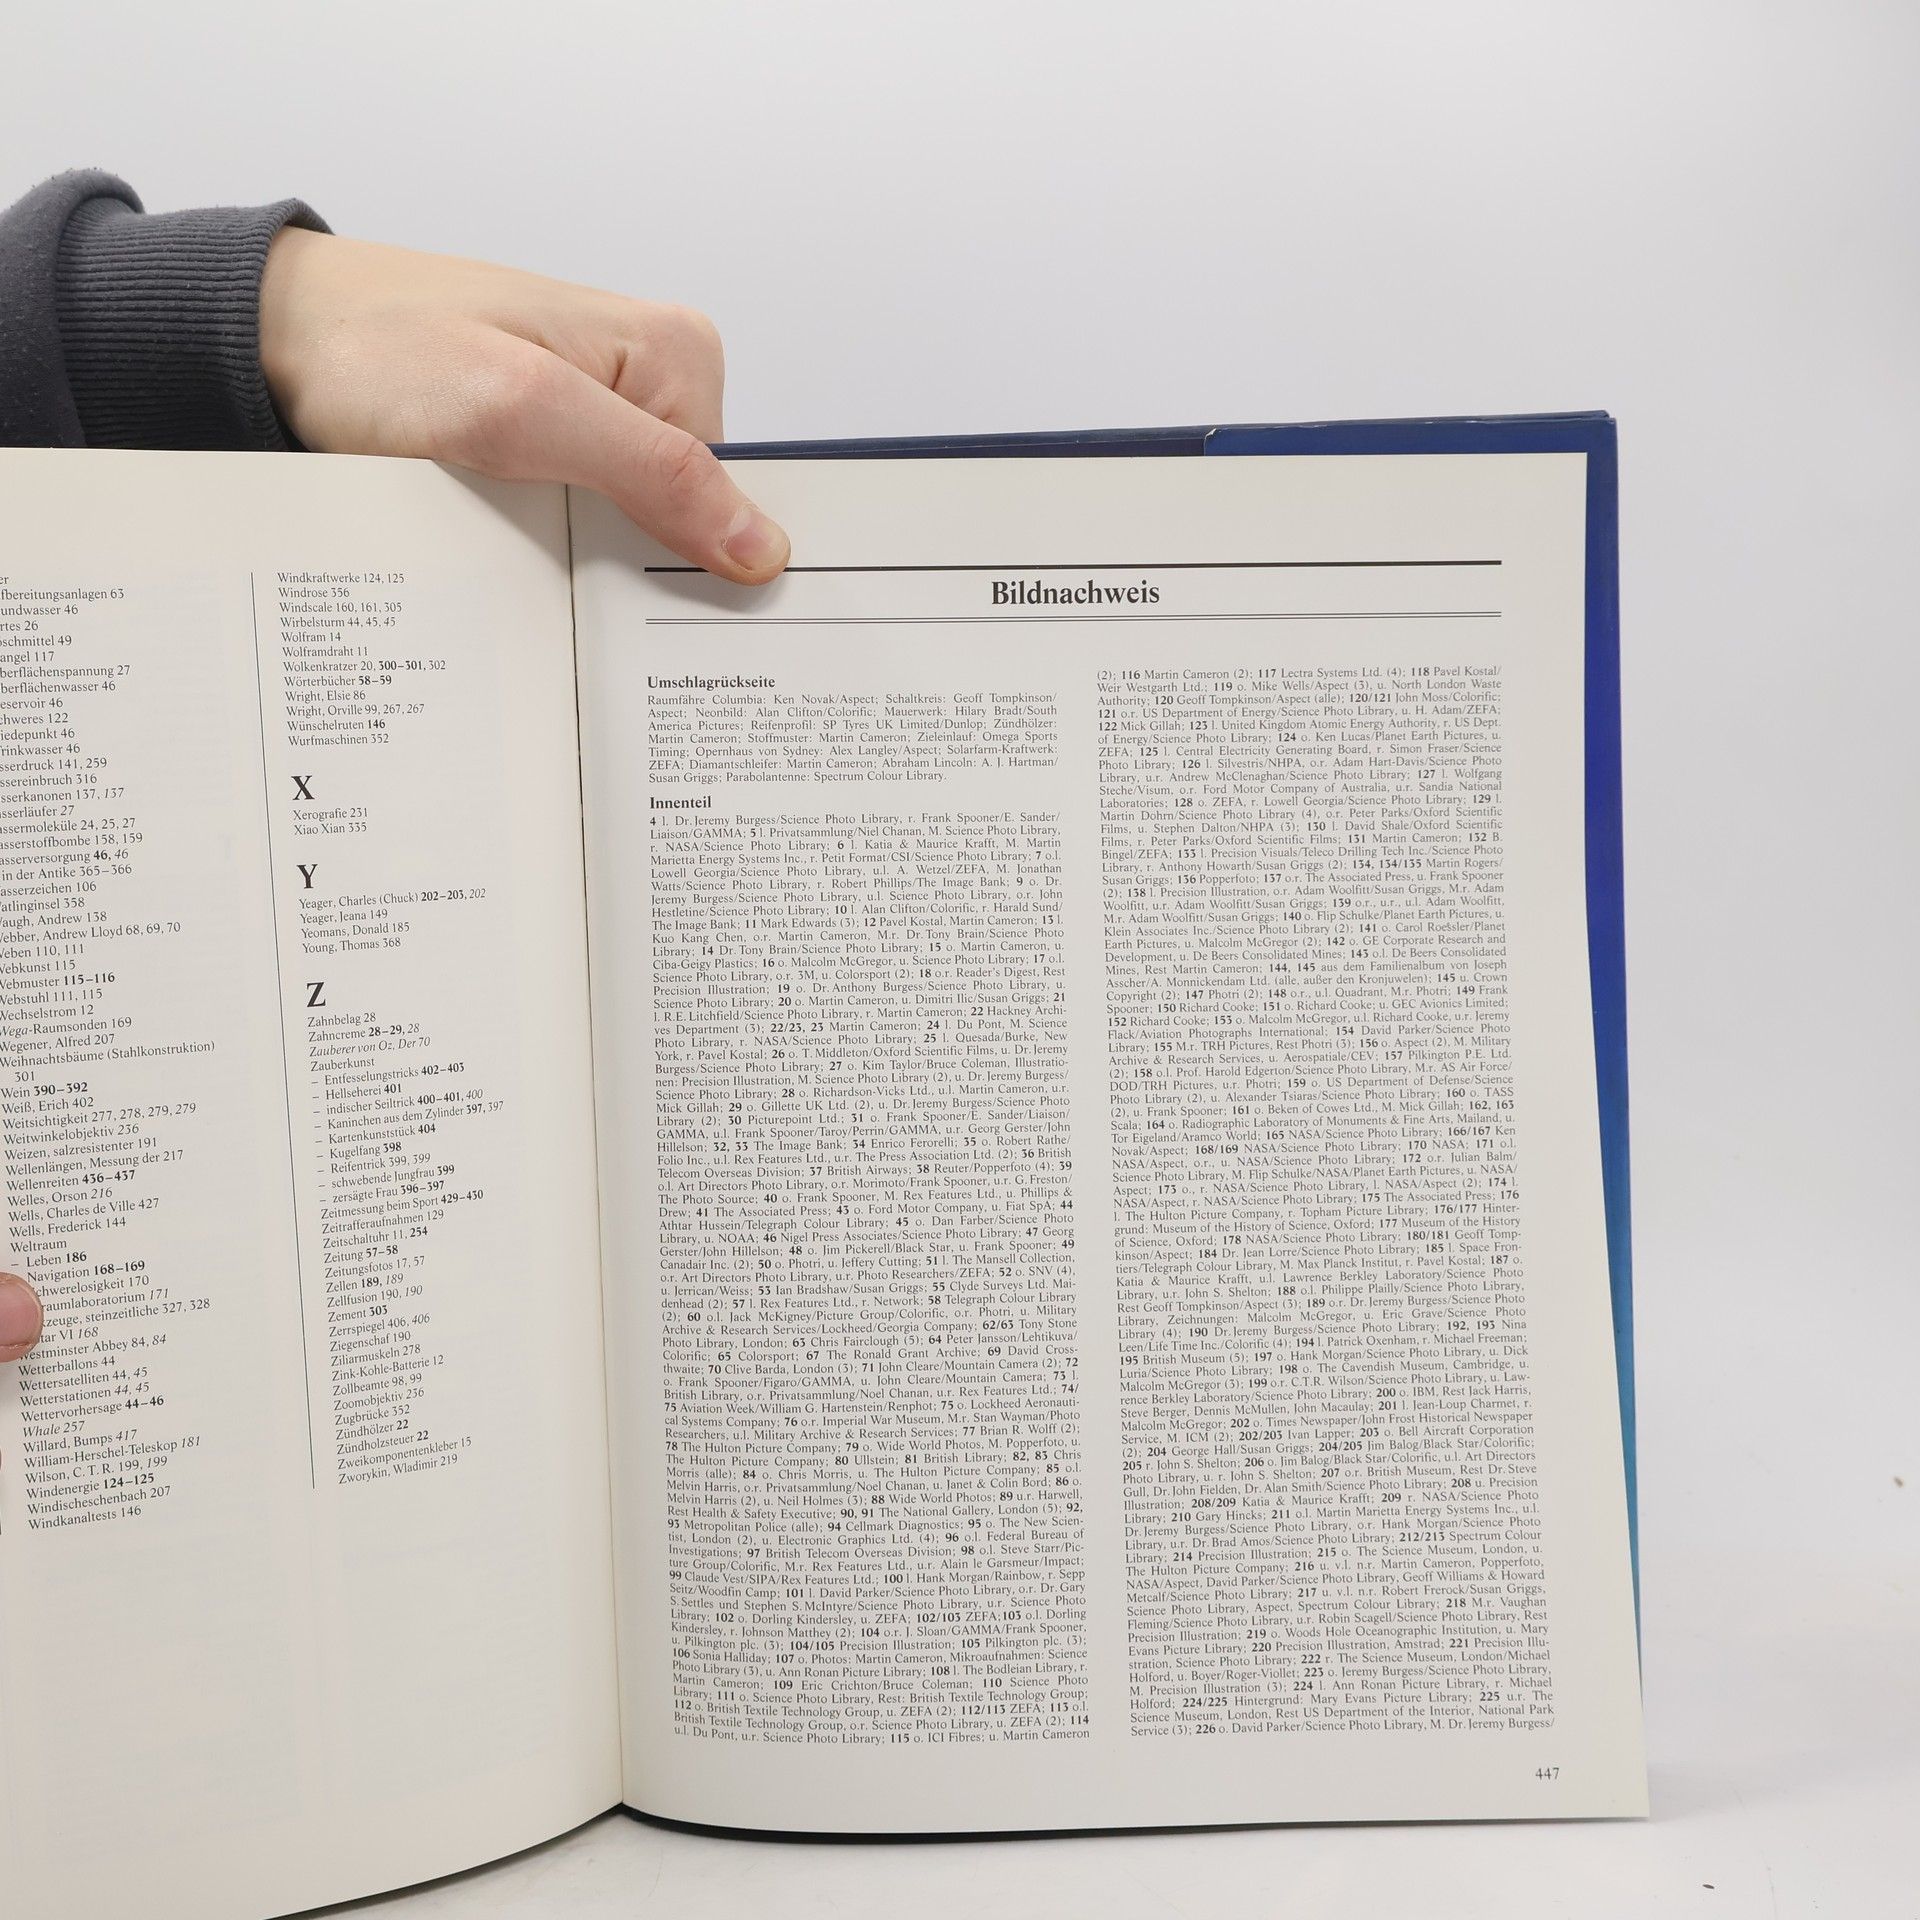 er
fbereitungsanlagen 63
undwasser 46
rtes 26
öschmittel 49
angel 117
berflächenspannung 27
berflächenwasser 46
eservoir 46
chweres 122
iedepunkt 46
Trinkwasser 46
sserdruck 141, 259
ssereinbruch 316
sserkanonen 137, 137
asserläufer 27
assermoleküle 24, 25, 27
asserstoffbombe 158, 159
asserversorgung 46, 46
in der Antike 365–366
asserzeichen 106
atlinginsel 358
augh, Andrew 138
ebber, Andrew Lloyd 68, 69, 70
eben 110, 111
ebkunst 115
ebmuster 115–116
Webstuhl 111, 115
Wechselstrom 12
Vega-Raumsonden 169
Wegener, Alfred 207
Weihnachtsbäume (Stahlkonstruktion)
301
Wein 390–392
Weiß, Erich 402
Weitsichtigkeit 277, 278, 279, 279
Weitwinkelobjektiv 236
Weizen, salzresistenter 191
Wellenlängen, Messung der 217
Wellenreiten 436–437
Welles, Orson 216
Wells, Charles de Ville 427
Wells, Frederick 144
Weltraum
– Leben 186
Navigation 168–169
chwerelosigkeit 170
raumlaboratorium 171
kzeuge, steinzeitliche 327, 328
tar VI 168
Westminster Abbey 84, 84
Wetterballons 44
Wettersatelliten 44, 45
Wetterstationen 44, 45
Wettervorhersage 44–46
Whale 257
Willard, Bumps 417
William-Herschel-Teleskop 181
Wilson, C. T. R. 199, 199
Windenergie 124–125
Windischeschenbach 207
Windkanaltests 146
Windkraftwerke 124, 125
Windrose 356
Windscale 160, 161, 305
Wirbelsturm 44, 45, 45
Wolfram 14
Wolframdraht 11
Wolkenkratzer 20, 300–301, 302
Wörterbücher 58–59
Wright, Elsie 86
Wright, Orville 99, 267, 267
Wünschelruten 146
Wurfmaschinen 352
X
Xerografie 231
Xiao Xian 335
Y
Yeager, Charles (Chuck) 202–203, 202
Yeager, Jeana 149
Yeomans, Donald 185
Young, Thomas 368
Z
Zahnbelag 28
Zahncreme 28–29, 28
Zauberer von Oz, Der 70
Zauberkunst
– Entfesselungstricks 402–403
– Hellseherei 401
– indischer Seiltrick 400–401, 400
– Kaninchen aus dem Zylinder 397, 397
– Kartenkunststück 404
– Kugelfang 398
– Reifentrick 399, 399
– schwebende Jungfrau 399
– zersägte Frau 396–397
Zeitmessung beim Sport 429–430
Zeitrafferaufnahmen 129
Zeitschaltuhr 11, 254
Zeitung 57–58
Zeitungsfotos 17, 57
Zellen 189, 189
Zellfusion 190, 190
Zement 303
Zerrspiegel 406, 406
Ziegenschaf 190
Ziliarmuskeln 278
Zink-Kohle-Batterie 12
Zollbeamte 98, 99
Zoomobjektiv 236
Zugbrücke 352
Zündhölzer 22
Zündholzsteuer 22
Zweikomponentenkleber 15
Zworykin, Wladimir 219
Bildnachweis
Umschlagrückseite
Raumfähre Columbia: Ken Novak/Aspect; Schaltkreis: Geoff Tompkinson/
Aspect; Neonbild: Alan Clifton/Colorific; Mauerwerk: Hilary Bradt/South
America Pictures; Reifenprofil: SP Tyres UK Limited/Dunlop; Zündhölzer:
Martin Cameron; Stoffmuster: Martin Cameron; Zieleinlauf: Omega Sports
Timing; Opernhaus von Sydney: Alex Langley/Aspect; Solarfarm-Kraftwerk:
ZEFA; Diamantschleifer: Martin Cameron; Abraham Lincoln: A. J. Hartman/
Susan Griggs; Parabolantenne: Spectrum Colour Library.
Innenteil
4 l. Dr. Jeremy Burgess/Science Photo Library, r. Frank Spooner/E. Sander/
Liaison/GAMMA; 5 l. Privatsammlung/Niel Chanan, M. Science Photo Library,
r. NASA/Science Photo Library; 6 l. Katia & Maurice Krafft, M. Martin
Marietta Energy Systems Inc., r. Petit Format/CSI/Science Photo Library; 7 o.l.
Lowell Georgia/Science Photo Library, u.l. A. Wetzel/ZEFA, M. Jonathan
Watts/Science Photo Library, r. Robert Phillips/The Image Bank; 9 o. Dr.
Jeremy Burgess/Science Photo Library, u.l. Science Photo Library, o.r. John
Hestletine/Science Photo Library; 10 l. Alan Clifton/Colorific, r. Harald Sund/
The Image Bank; 11 Mark Edwards (3); 12 Pavel Kostal, Martin Cameron; 13 l.
Kuo Kang Chen, o.r. Martin Cameron, M.r. Dr. Tony Brain/Science Photo
Library; 14 Dr. Tony Brain/Science Photo Library; 15 o. Martin Cameron, u.
Ciba-Geigy Plastics; 16 o. Malcolm McGregor, u. Science Photo Library; 17 o.l.
Science Photo Library, o.r. 3M, u. Colorsport (2); 18 o.r. Reader's Digest, Rest
Precision Illustration; 19 o. Dr. Anthony Burgess/Science Photo Library, u.
Science Photo Library; 20 o. Martin Cameron, u. Dimitri Ilic/Susan Griggs; 21
l. R.E. Litchfield/Science Photo Library, r. Martin Cameron; 22 Hackney Archi-
ves Department (3); 22/23, 23 Martin Cameron; 24 l. Du Pont, M. Science
Photo Library, r. NASA/Science Photo Library; 25 l. Quesada/Burke, New
York, r. Pavel Kostal; 26 o. T. Middleton/Oxford Scientific Films, u. Dr. Jeremy
Burgess/Science Photo Library; 27 o. Kim Taylor/Bruce Coleman, Illustratio-
nen: Precision Illustration, M. Science Photo Library (2), u. Dr. Jeremy Burgess/
Science Photo Library; 28 o. Richardson-Vicks Ltd., u.l. Martin Cameron, u.r.
Mick Gillah; 29 o. Gillette UK Ltd. (2), u. Dr. Jeremy Burgess/Science Photo
Library (2); 30 Picturepoint Ltd.; 31 o. Frank Spooner/E. Sander/Liaison/
GAMMA, u.l. Frank Spooner/Taroy/Perrin/GAMMA, u.r. Georg Gerster/John
Hillelson; 32, 33 The Image Bank; 34 Enrico Ferorelli; 35 o. Robert Rathe/
Folio Inc., u.l. Rex Features Ltd., u.r. The Press Association Ltd. (2); 36 British
Telecom Overseas Division; 37 British Airways; 38 Reuter/Popperfoto (4); 39
o.l. Art Directors Photo Library, o.r. Morimoto/Frank Spooner, u.r. G. Freston/
The Photo Source; 40 o. Frank Spooner, M. Rex Features Ltd., u. Phillips &
Drew; 41 The Associated Press; 43 o. Ford Motor Company, u. Fiat SpA; 44
Athtar Hussein/Telegraph Colour Library; 45 o. Dan Farber/Science Photo
Library, u. NOAA; 46 Nigel Press Associates/Science Photo Library; 47 Georg
Gerster/John Hillelson; 48 o. Jim Pickerell/Black Star, u. Frank Spooner; 49
Canadair Inc. (2); 50 o. Photri, u. Jeffery Cutting; 51 l. The Mansell Collection,
o.r. Art Directors Photo Library, u.r. Photo Researchers/ZEFA; 52 o. SNV (4),
u. Jerrican/Weiss; 53 Ian Bradshaw/Susan Griggs; 55 Clyde Surveys Ltd. Mai-
denhead (2); 57 l. Rex Features Ltd., r. Network; 58 Telegraph Colour Library
(2); 60 o.l. Jack McKigney/Picture Group/Colorific, o.r. Photri, u. Military
Archive & Research Services/Lockheed/Georgia Company; 62/63 Tony Stone
Photo Library, London; 63 Chris Fairclough (5); 64 Peter Jansson/Lehtikuva/
Colorific; 65 Colorsport; 67 The Ronald Grant Archive; 69 David Cross-
thwaite; 70 Clive Barda, London (3); 71 John Cleare/Mountain Camera (2); 72
o. Frank Spooner/Figaro/GAMMA, u. John Cleare/Mountain Camera; 73 l.
British Library, o.r. Privatsammlung/Noel Chanan, u.r. Rex Features Ltd.; 74/
75 Aviation Week/William G. Hartenstein/Renphot; 75 o. Lockheed Aeronauti-
cal Systems Company; 76 o.r. Imperial War Museum, M.r. Stan Wayman/Photo
Researchers, u.l. Military Archive & Research Services; 77 Brian R. Wolff (2);
78 The Hulton Picture Company; 79 o. Wide World Photos, M. Popperfoto, u.
The Hulton Picture Company; 80 Ullstein; 81 British Library; 82, 83 Chris
Morris (alle); 84 o. Chris Morris, u. The Hulton Picture Company; 85 o.l.
Melvin Harris, o.r. Privatsammlung/Noel Chanan, u. Janet & Colin Bord; 86 o.
Melvin Harris (2), u. Neil Holmes (3); 88 Wide World Photos; 89 u.r. Harwell,
Rest Health & Safety Executive; 90, 91 The National Gallery, London (5); 92,
93 Metropolitan Police (alle); 94 Cellmark Diagnostics; 95 o. The New Scien-
tist, London (2), u. Electronic Graphics Ltd. (4); 96 o.l. Federal Bureau of
Investigations; 97 British Telecom Overseas Division; 98 o.l. Steve Starr/Pic-
ture Group/Colorific, M.r. Rex Features Ltd., u.r. Alain le Garsmeur/Impact;
99 Claude Vest/SIPA/Rex Features Ltd.; 100 l. Hank Morgan/Rainbow, r. Sepp
Seitz/Woodfin Camp; 101 l. David Parker/Science Photo Library, o.r. Dr. Gary
S. Settles und Stephen S. McIntyre/Science Photo Library, u.r. Science Photo
Library; 102 o. Dorling Kindersley, u. ZEFA; 102/103 ZEFA; 103 o.l. Dorling
Kindersley, r. Johnson Matthey (2); 104 o.r. J. Sloan/GAMMA/Frank Spooner,
u. Pilkington plc. (3); 104/105 Precision Illustration; 105 Pilkington plc. (3);
106 Sonia Halliday; 107 o. Photos: Martin Cameron, Mikroaufnahmen: Science
Photo Library (3), u. Ann Ronan Picture Library; 108 l. The Bodleian Library, r.
Martin Cameron; 109 Eric Crichton/Bruce Coleman; 110 Science Photo
Library; 111 o. Science Photo Library, Rest: British Textile Technology Group;
112 o. British Textile Technology Group, u. ZEFA (2); 112/113 ZEFA; 113 o.l.
British Textile Technology Group, o.r. Science Photo Library, u. ZEFA (2); 114
u.l. Du Pont, u.r. Science Photo Library; 115 o. ICI Fibres; u. Martin Cameron
(2); 116 Martin Cameron (2); 117 Lectra Systems Ltd. (4); 118 Pavel Kostal/
Weir Westgarth Ltd.; 119 o. Mike Wells/Aspect (3), u. North London Waste
Authority; 120 Geoff Tompkinson/Aspect (alle); 120/121 John Moss/Colorific;
121 o.r. US Department of Energy/Science Photo Library, u. H. Adam/ZEFA;
122 Mick Gillah; 123 l. United Kingdom Atomic Energy Authority, r. US Dept.
of Energy/Science Photo Library; 124 o. Ken Lucas/Planet Earth Pictures, u.
ZEFA; 125 l. Central Electricity Generating Board, r. Simon Fraser/Science
Photo Library; 126 l. Silvestris/NHPA, o.r. Adam Hart-Davis/Science Photo
Library, u.r. Andrew McClenaghan/Science Photo Library; 127 l. Wolfgang
Steche/Visum, o.r. Ford Motor Company of Australia, u.r. Sandia National
Laboratories; 128 o. ZEFA, r. Lowell Georgia/Science Photo Library; 129 l.
Martin Dohrn/Science Photo Library (4), o.r. Peter Parks/Oxford Scientific
Films, u. Stephen Dalton/NHPA (3); 130 l. David Shale/Oxford Scientific
Films, r. Peter Parks/Oxford Scientific Films; 131 Martin Cameron; 132 B.
Bingel/ZEFA; 133 l. Precision Visuals/Teleco Drilling Tech Inc./Science Photo
Library, r. Anthony Howarth/Susan Griggs (2); 134, 134/135 Martin Rogers/
Susan Griggs; 136 Popperfoto; 137 o.r. The Associated Press, u. Frank Spooner
(2); 138 l. Precision Illustration, o.r. Adam Woolfitt/Susan Griggs, M.r. Adam
Woolfitt, u.r. Adam Woolfitt/Susan Griggs; 139 o.r., u.r., u.l. Adam Woolfitt,
M.r. Adam Woolfitt/Susan Griggs; 140 o. Flip Schulke/Planet Earth Pictures, u.
Klein Associates Inc./Science Photo Library (2); 141 o. Carol Roeßsler/Planet
Earth Pictures, u. Malcolm McGregor (2); 142 o. GE Corporate Research and
Development, u. De Beers Consolidated Mines; 143 o.l. De Beers Consolidated
Mines, Rest Martin Cameron; 144, 145 aus dem Familienalbum von Joseph
Asscher/A. Monnickendam Ltd. (alle, außer den Kronjuwelen); 145 u. Crown
Copyright (2); 147 Photri (2); 148 o.r., u.l. Quadrant, M.r. Photri; 149 Frank
Spooner; 150 Richard Cooke; 151 o. Richard Cooke; u. GEC Avionics Limited;
152 Richard Cooke; 153 o. Malcolm McGregor, u.l. Richard Cooke, u.r. Jeremy
Flack/Aviation Photographs International; 154 David Parker/Science Photo
Library; 155 M.r. TRH Pictures, Rest Photri (3); 156 o. Aspect (2), M. Military
Archive & Research Services, u. Aerospatiale/CEV; 157 Pilkington P.E. Ltd.
(2); 158 o.l. Prof. Harold Edgerton/Science Photo Library, M.r. AS Air Force/
DOD/TRH Pictures, u.r. Photri; 159 o. US Department of Defense/Science
Photo Library (2), u. Alexander Tsiaras/Science Photo Library; 160 o. TASS
(2), u. Frank Spooner; 161 o. Beken of Cowes Ltd., M. Mick Gillah; 162, 163
Scala; 164 o. Radiographic Laboratory of Monuments & Fine Arts, Mailand, u.
Tor Eigeland/Aramco World; 165 NASA/Science Photo Library; 166/167 Ken
Novak/Aspect; 168/169 NASA/Science Photo Library; 170 NASA; 171 o.l.
NASA/Aspect, o.r., u. NASA/Science Photo Library; 172 o.r. Julian Balm/
Science Photo Library, M. Flip Schulke/NASA/Planet Earth Pictures, u. NASA/
Aspect; 173 o., r. NASA/Science Photo Library, l. NASA/Aspect (2); 174 l.
NASA/Aspect, r. NASA/Science Photo Library; 175 The Associated Press; 176
l. The Hulton Picture Company, r. Topham Picture Library; 176/177 Hinter-
grund: Museum of the History of Science, Oxford; 177 Museum of the History
of Science, Oxford; 178 NASA/Science Photo Library; 180/181 Geoff Tomp-
kinson/Aspect; 184 Dr. Jean Lorre/Science Photo Library; 185 l. Space Fron-
tiers/Telegraph Colour Library, M. Max Planck Institut, r. Pavel Kostal; 187 o.
Katia & Maurice Krafft, u.l. Lawrence Berkley Laboratory/Science Photo
Library, u.r. John S. Shelton; 188 o.l. Philippe Plailly/Science Photo Library,
Rest Geoff Tompkinson/Aspect (3); 189 o.r. Dr. Jeremy Burgess/Science Photo
Library, Zeichnungen: Malcolm McGregor, u. Eric Grave/Science Photo
Library (4); 190 Dr. Jeremy Burgess/Science Photo Library; 192, 193 Nina
Leen/Life Time Inc./Colorific (4); 194 l. Patrick Oxenham, r. Michael Freeman;
195 British Museum (5); 197 o. Hank Morgan/Science Photo Library, u. Dick
Luria/Science Photo Library; 198 o. The Cavendish Museum, Cambridge, u.
Malcolm McGregor (3); 199 o.r. C.T.R. Wilson/Science Photo Library, u. Law-
rence Berkley Laboratory/Science Photo Library; 200 o. IBM, Rest Jack Harris,
Steve Berger, Dennis McMullen, John Macaulay; 201 l. Jean-Loup Charmet, r.
Malcolm McGregor; 202 o. Times Newspaper/John Frost Historical Newspaper
Service, M. ICM (2); 202/203 Ivan Lapper; 203 o. Bell Aircraft Corporation
(2); 204 George Hall/Susan Griggs; 204/205 Jim Balog/Black Star/Colorific;
205 r. John S. Shelton; 206 o. Jim Balog/Black Star/Colorific, u.l. Art Directors
Photo Library, u. r. John S. Shelton; 207 o.r. British Museum, Rest Dr. Steve
Gull, Dr. John Fielden, Dr. Alan Smith/Science Photo Library; 208 u. Precision
Illustration; 208/209 Katia & Maurice Krafft; 209 r. NASA/Science Photo
Library; 210 Gary Hincks; 211 o.l. Martin Marietta Energy Systems Inc., u.l.
Dr. Jeremy Burgess/Science Photo Library, o.r. Hank Morgan/Science Photo
Library, u.r. Dr. Brad Amos/Science Photo Library; 212/213 Spectrum Colour
Library; 214 Precision Illustration; 215 o. The Science Museum, London, u.
The Hulton Picture Company; 216 u. v.l. n.r. Martin Cameron, Popperfoto,
NASA/Aspect, David Parker/Science Photo Library, Geoff Williams & Howard
Metcalf/Science Photo Library; 217 u. v.l. n.r. Robert Frerock/Susan Griggs,
Science Photo Library, Aspect, Spectrum Colour Library; 218 M.r. Vaughan
Fleming/Science Photo Library, u.r. Robin Scagell/Science Photo Library, Rest
Precision Illustration; 219 o. Woods Hole Oceanographic Institution, u. Mary
Evans Picture Library; 220 Precision Illustration, Amstrad; 221 Precision Illu-
stration, Science Photo Library; 222 r. The Science Museum, London/Michael
Holford, u. Boyer/Roger-Viollet; 223 o. Jeremy Burgess/Science Photo Library,
M. Precision Illustration (3); 224 l. Ann Ronan Picture Library, r. Michael
Holford; 224/225 Hintergrund: Mary Evans Picture Library; 225 u.r. The
Science Museum, London, Rest US Department of the Interior, National Park
Service (3); 226 o. David Parker/Science Photo Library, M. Dr. Jeremy Burgess/
447